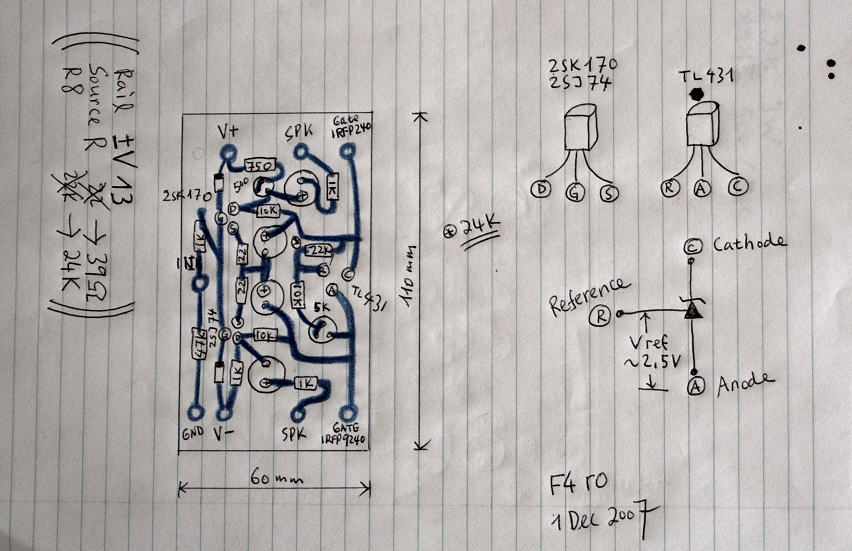 Rail ±V 13
Source R 22 → 39Ω
R8 22K → 24K
V+
SPK
Gate
IRFP240
750
500
1K
2SK170
D
G
S
10K
1K
22
22K
R
C
A
TL431
IN
22
10K
5K
2SJ74
S
G
D
10K
47K
1K
1K
GND
V-
SPK
GATE
IRFP9240
60mm
110mm
⊛ 24K
2SK170
2SJ74
D
G
S
TL431
R
A
C
C Cathode
Reference
R
Vref
~2,5V
A Anode
F4 r0
1 Dec 2007